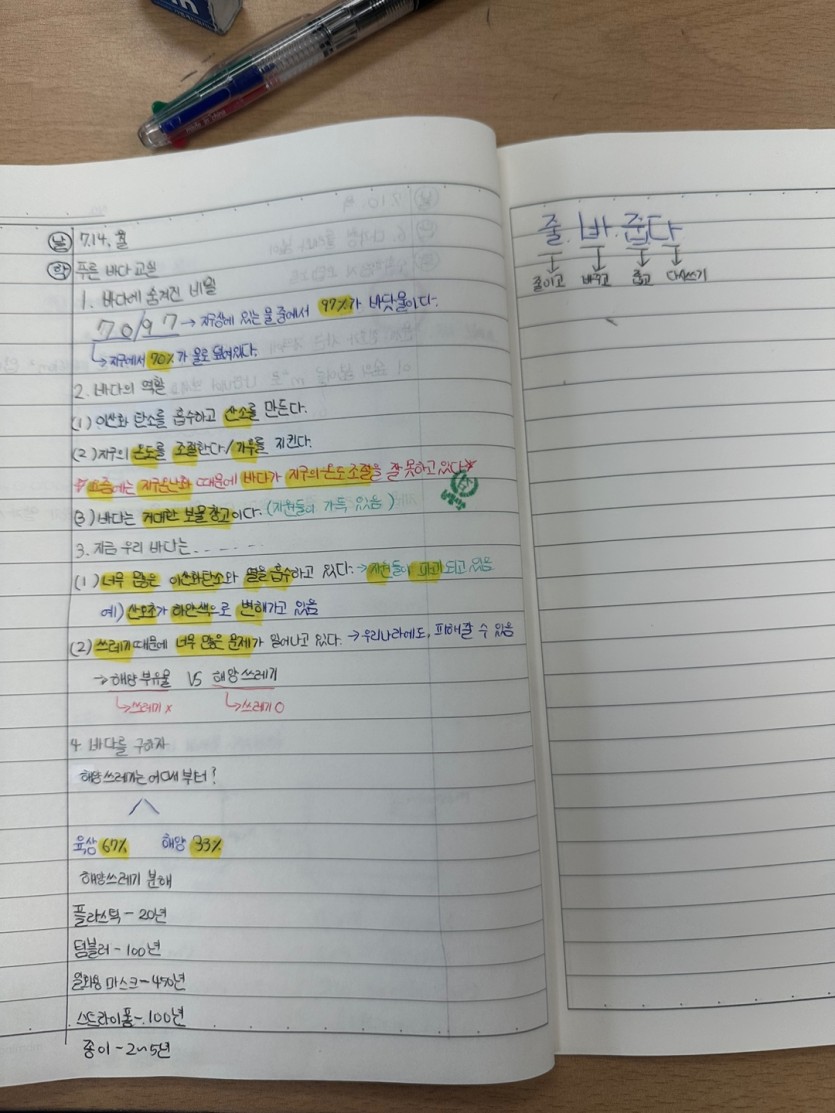 날 7.14. 월
학 푸른 바다 교실
1. 바다에 숨겨진 비밀
70/97 → 지구상에 있는 물 중에서 97%가 바닷물이다.
↳ 지구에서 70%가 물로 덮여있다.
2. 바다의 역할
(1) 이산화 탄소를 흡수하고 산소를 만든다.
(2) 지구의 온도를 조절한다/기후를 지킨다.
요즘에는 지구온난화 때문에 바다가 지구의 온도 조절을 잘 못하고 있다
(3) 바다는 거대한 보물창고이다. (자원들이 가득 있음)
3. 지금 우리 바다는......
(1) 너무 많은 이산화탄소와 열을 흡수하고 있다. → 자원들이 파괴되고 있음
예) 산호초가 하얀색으로 변해가고 있음
(2) 쓰레기 때문에 너무 많은 문제가 일어나고 있다. → 우리나라에도, 피해갈 수 있음
→ 해양 부유물 VS 해양 쓰레기
↳ 쓰레기 x ↳ 쓰레기 O
4. 바다를 구하자
해양 쓰레기는 어디서 부터?
육상 67% 해양 33%
해양쓰레기 분해
플라스틱 - 20년
텀블러 - 100년
일회용 마스크 - 450년
스트라이폼 - 100년
종이 - 2~5년
줄.바.줍다
줄이고 바꾸고 줍고 다시쓰기